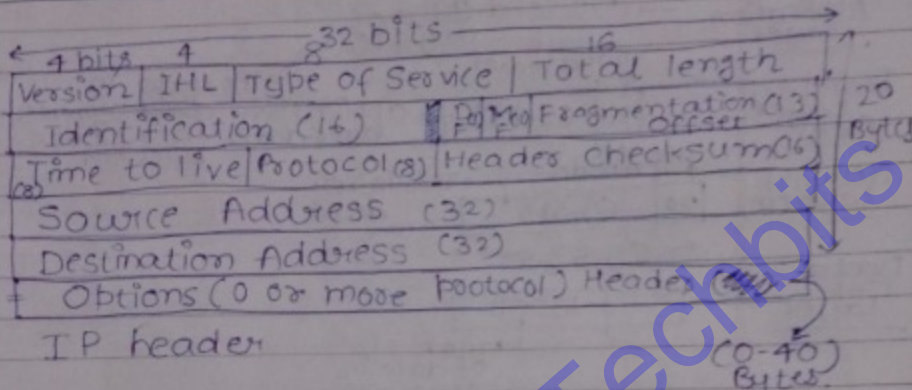 32 bits
4 bits 4 8 16
Version IHL Type of Service Total length
Identification (16) Fragmentation (13)
offset
20
Bytes
(8) Time to live Protocol (8) Header Checksum (16)
Source Address (32)
Destination Address (32)
Options (0 or more protocol) Header
IP header
(0-40)
Bytes
Techbits